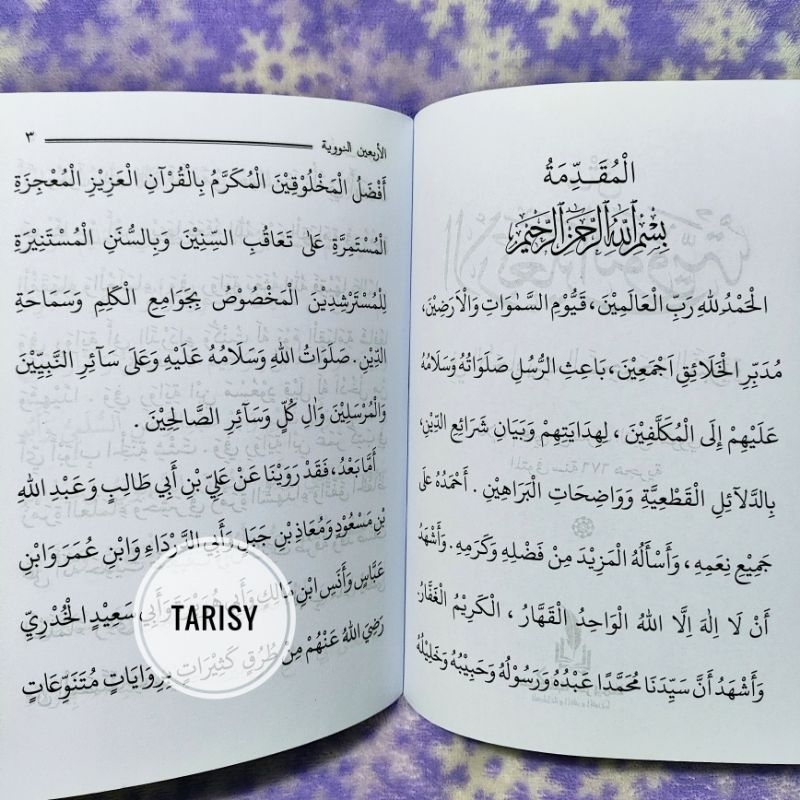 الْمُقَدِّمَةُ
بِسْمِ اللّٰهِ الرَّحْمٰنِ الرَّحِيْمِ
الْحَمْدُ لِلّٰهِ رَبِّ الْعَالَمِيْنَ، قَيُّوْمِ السَّمٰوَاتِ وَالْاَرَضِيْنَ،
مُدَبِّرِ الْخَلَائِقِ اَجْمَعِيْنَ، بَاعِثِ الرُّسُلِ صَلَوَاتُهُ وَسَلَامُهُ
عَلَيْهِمْ إِلَى الْمُكَلَّفِيْنَ، لِهِدَايَتِهِمْ وَبَيَانِ شَرَائِعِ الدِّيْنِ،
بِالدَّلَآئِلِ الْقَطْعِيَّةِ وَوَاضِحَاتِ الْبَرَاهِيْنِ. أَحْمَدُهُ عَلَى
جَمِيْعِ نِعَمِهِ، وَأَسْأَلُهُ الْمَزِيْدَ مِنْ فَضْلِهِ وَكَرَمِهِ. وَأَشْهَدُ
أَنْ لَا اِلٰهَ اِلَّا اللهُ الْوَاحِدُ الْقَهَّارُ، الْكَرِيْمُ الْغَفَّارُ.
وَأَشْهَدُ أَنَّ سَيِّدَنَا مُحَمَّدًا عَبْدُهُ وَرَسُوْلُهُ وَحَبِيْبُهُ وَخَلِيْلُهُ
الأربعين النووية ٣
أَفْضَلُ الْمَخْلُوْقِيْنَ الْمُكَرَّمُ بِالْقُرْآنِ الْعَزِيْزِ الْمُعْجِزَةِ
الْمُسْتَمِرَّةِ عَلَى تَعَاقُبِ السِّنِيْنَ وَبِالسُّنَنِ الْمُسْتَنِيْرَةِ
لِلْمُسْتَرْشِدِيْنَ الْمَخْصُوْصُ بِجَوَامِعِ الْكَلِمِ وَسَمَاحَةِ
الدِّيْنِ. صَلَوَاتُ اللهِ وَسَلَامُهُ عَلَيْهِ وَعَلَى سَآئِرِ النَّبِيِّيْنَ
وَالْمُرْسَلِيْنَ وَاٰلِ كُلٍّ وَسَآئِرِ الصَّالِحِيْنَ.
أَمَّا بَعْدُ، فَقَدْ رَوَيْنَا عَنْ عَلِيِّ بْنِ أَبِي طَالِبٍ وَعَبْدِ اللهِ
بْنِ مَسْعُوْدٍ وَمُعَاذِ بْنِ جَبَلٍ وَأَبِي الدَّرْدَاءِ وَابْنِ عُمَرَ وَابْنِ
عَبَّاسٍ وَأَنَسِ ابْنِ مَالِكٍ وَأَبِي هُرَيْرَةَ وَأَبِي سَعِيْدٍ الْخُدْرِيِّ
رَضِيَ اللهُ عَنْهُمْ مِنْ طُرُقٍ كَثِيْرَاتٍ بِرِوَايَاتٍ مُتَنَوِّعَاتٍ
TARISY